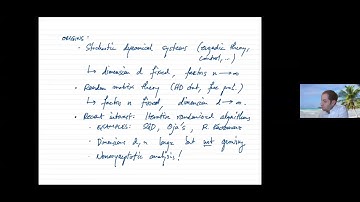 ORIGINS:
• Stochastic dynamical systems (ergodic theory, control, ...)
↳ dimension d fixed, factors n → ∞
• Random matrix theory (HD stat, free prob.)
↳ factors n fixed, dimension d → ∞.
• Recent interest: Iterative randomized algorithms
- EXAMPLES: SGD, Oja's, R. Kaczmarz
- Dimensions d, n large but not growing
- Nonasymptotic analysis!